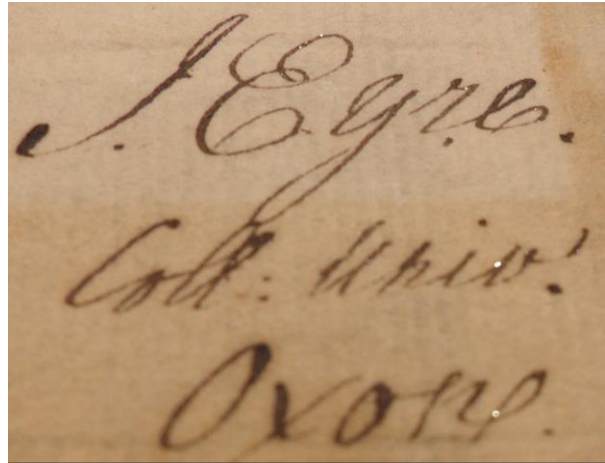 J. Eyre.
Coll: Univ:
Oxon.